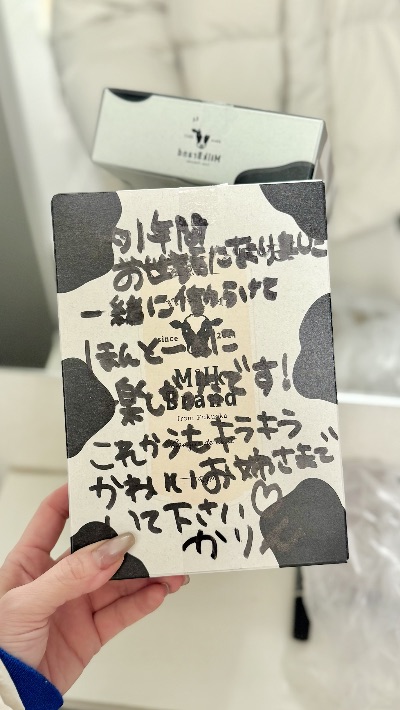 MilkBrand
約1年間
お世話になりました
一緒に働らけて
since
ほんとーーに
Milk
楽しかったです!
Brand
from Fukuoka
これからもキラキラ
かわいいお姉さまで
いて下さい♡
かり